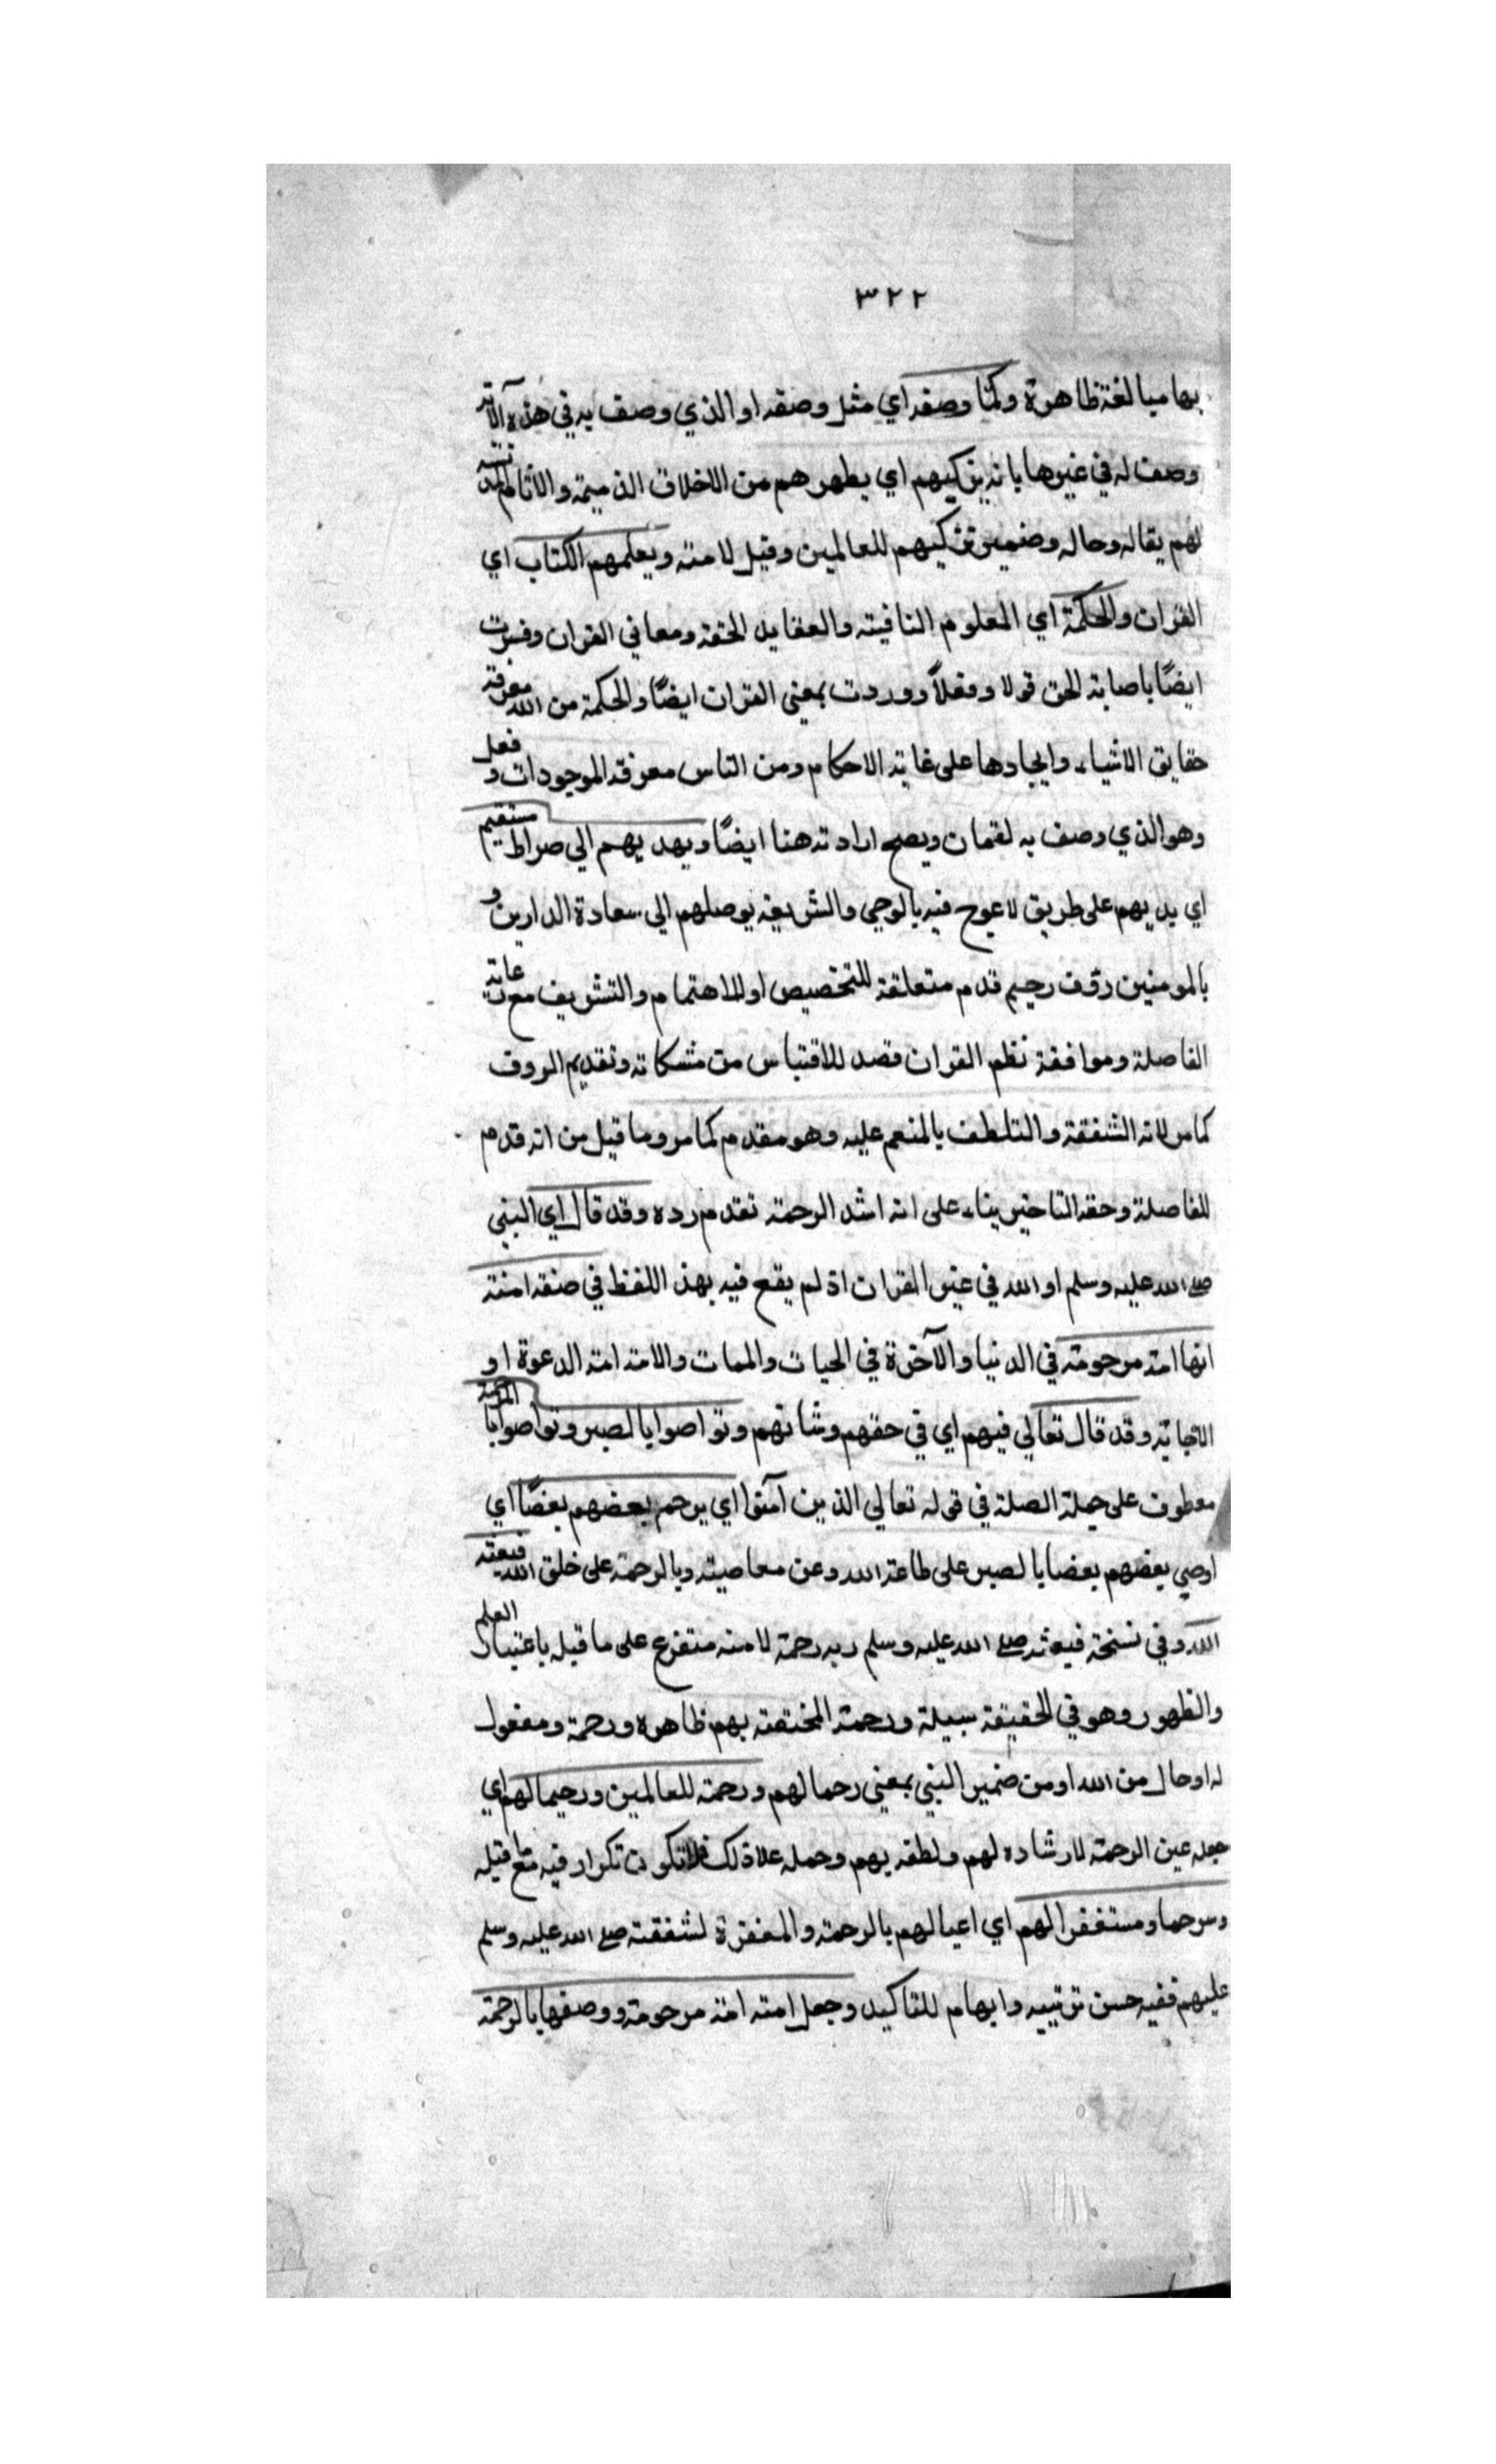 ٣٢٢
بها مبالغة ظاهرة وكما وصفه اي مثل وصفه او الذي وصف به في هذه الآية
وصف له في غيرها بانه يزكيهم اي يطهرهم من الاخلاق الذميمة والاثام
لهم بقاله وحاله وضمير تزكيهم للعالمين وقيل لامته ويعلمهم الكتاب اي
القران والحكمة اي المعلوم النافية والعقايد الحقة ومعاني القران وفسرت
ايضًا باصابة الحق قولا وفعلاً ووردت بمعنى القران ايضًا والحكمة من الله معرفة
حقايق الاشياء وايجادها على غاية الاحكام ومن الناس معرفة الموجودات و فعل
وهو الذي وصف به لقمان ويصح ارادته هنا ايضًا ويهديهم الي صراط مستقيم
اي يديهم على طريق لا عوج فيه بالوحي والشريعة يوصلهم الي سعادة الدارين و
بالمومنين رؤف رحيم قدم متعلقة للتخصيص او للاهتمام والتشريف مع رعاية
الفاصلة وموافقة نظم القران قصد للاقتباس من مشكاته وتقديم الروف
كما مر لانه الشفقة والتلطف بالمنعم عليه وهو مقدم كما مر وما قيل من انه قدم
للفاصلة وحقه التاخير بناء على انه اشد الرحمة تقدم رده وقد قال اي النبي
صلى الله عليه وسلم او الله في غير القران اذ لم يقع فيه بهذ اللفظ في صفة امته
انها امة مرحومة في الدنيا والآخرة في الحيات والممات والامة امة الدعوة او
الاجابة وقد قال تعالي فيهم اي في حقهم وشانهم وتواصوا بالصبر وتواصوا بالمرحمة
معطوف على جملة الصلة في قوله تعالي الذين آمنوا اي يرحم بعضهم بعضًا اي
اوصي بعضهم بعضا بالصبر على طاعة الله وعن معاصيته وبالرحمة على خلق الله فبعثه
الله وفي نسخة فبعثه صلى الله عليه وسلم ربه رحمة لامته متفرع على ما قبله باعتبار العلم
والظهور وهو في الحقيقة سببية ورحمة المختصة بهم ظاهره ورحمة ومفعول
له او حال من الله او من ضمير النبي بمعنى رحما لهم ورحمة للعالمين ورحيما لهم اي
جعله عين الرحمة لارشاده لهم ولطفه بهم وحمله علا ذلك فلا تكون تكرار فيه مع قبله
ومرحما ومستغفرا لهم اي اعيا لهم بالرحمة والمغفرة لشفقته صلى الله عليه وسلم
عليهم ففيه حسن ترتيبه وابهام للتاكيد وجعل امته امة مرحومة ووصفها بالرحمة